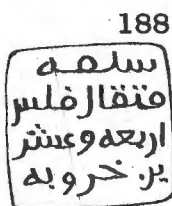 188
سلمه
متقال فلس
اربعه وعشر
ين خروبه